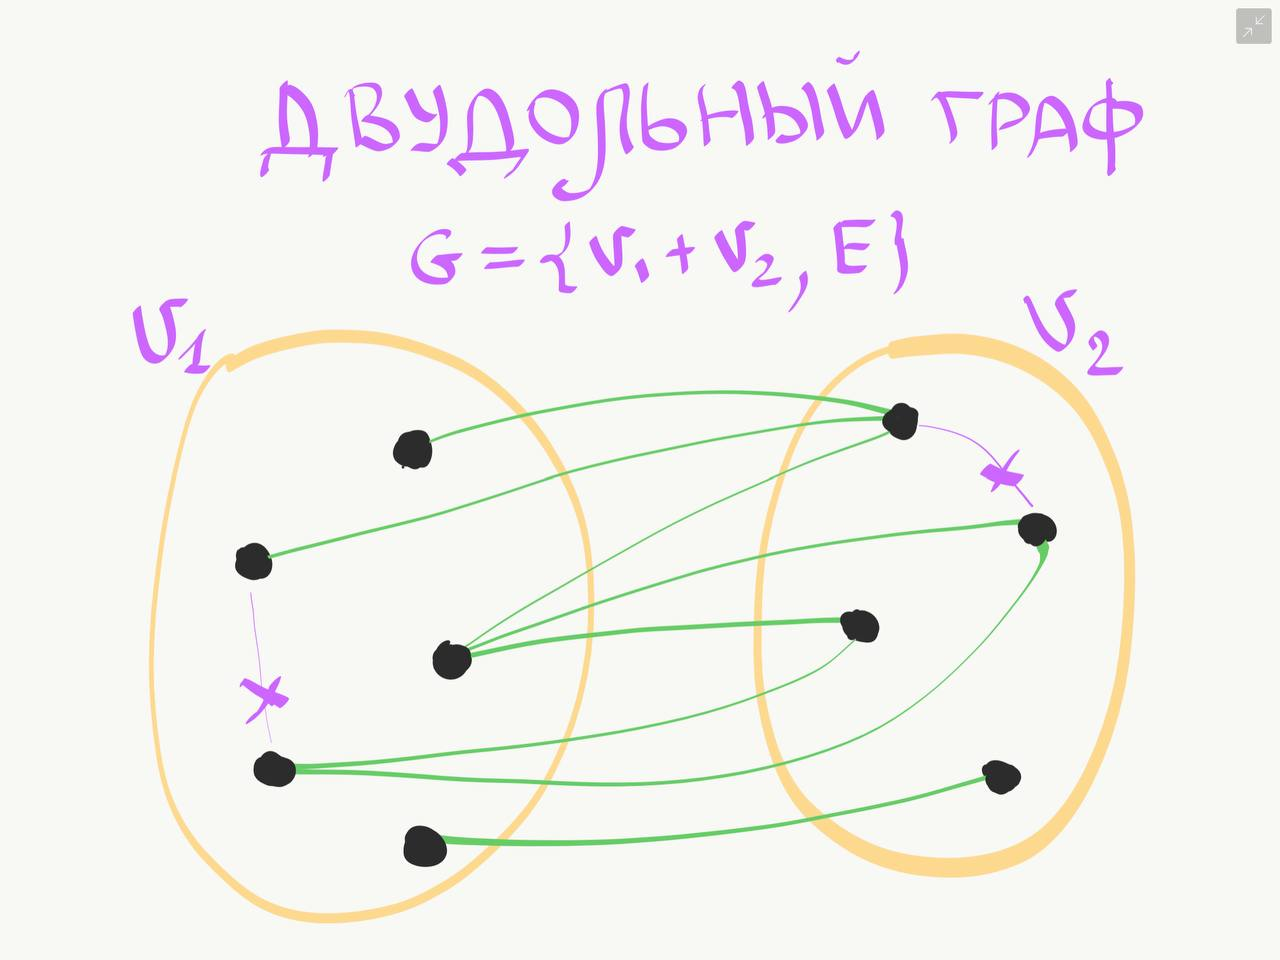 ДВУДОЛЬНЫЙ ГРАФ
G = {V₁ + V₂, E}
V₁
V₂